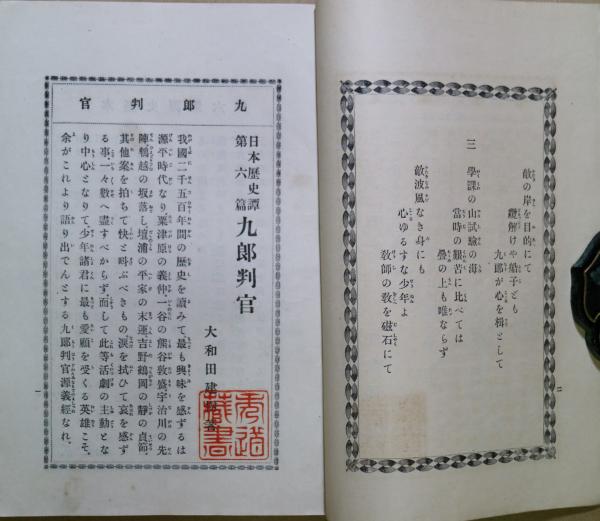 敵の岸を目的にて
纜解けや船子ども
九郎が心を楫として
三 學課の山試驗の海
當時の艱苦に比べては
疊の上も唯ならず
敵波風なき身にも
心ゆるすな少年よ
敎師の敎を磁石にて
二
九郎判官
日本歷史譚第六篇 九郎判官
大和田建樹著
我國二千五百年間の歷史を讀みて最も興味を感ずるは
源平時代なり粟津原の義仲一谷の熊谷敦盛宇治川の先
陣鵯越の坂落し壇浦の平家の末運吉野鶴岡の靜の貞節
其他案を拍ちて快と呼ぶべきもの淚を拭ひて哀を感ず
る事一々數へ盡すべからず而して此等活劇の主動とな
り中心となりて、少年諸君に最も愛顧を受くる英雄こそ、
余がこれより語り出でんとする九郎判官源義經なれ。
一